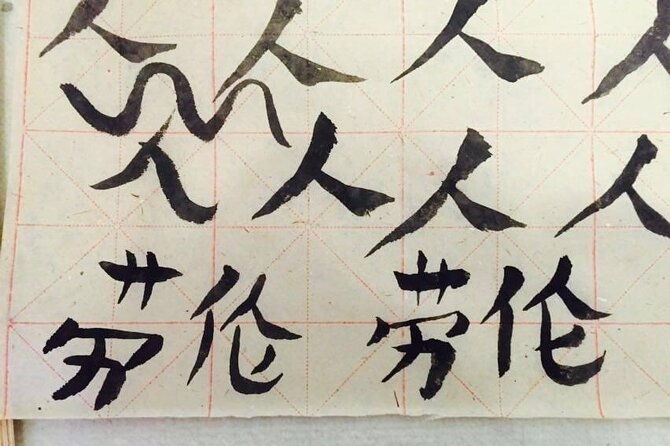 人人人人
人人人人
劳伦 劳伦